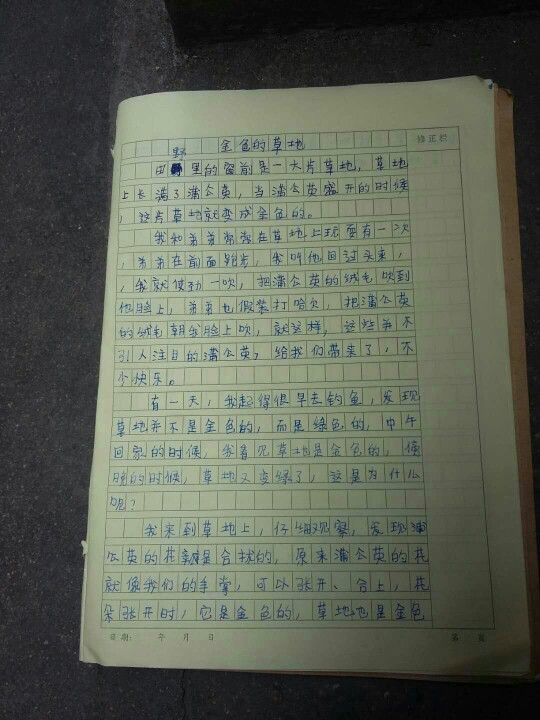 金色的草地
修正栏
田野里的窗前是一大片草地，草地
上长满了蒲公英，当蒲公英盛开的时候
，这片草地就变成金色的。
我和弟弟常常在草地上玩耍有一次
，弟弟在前面跑步，我叫他回过头来，
，我就使劲一吹，把蒲公英的绒毛吹到
他脸上，弟弟也假装打哈欠，把蒲公英
的绒毛朝我脸上吹，就这样，这些并不
引人注目的蒲公英，给我们带来了，不
少快乐。
有一天，我起得很早去钓鱼，发现
草地并不是金色的，而是绿色的，中午
回家的时候，我看见草地是金色的，傍
晚的时候，草地又变绿了，这是为什么
呢？
我来到草地上，仔细观察，发现蒲
公英的花瓣是合拢的，原来蒲公英的花
就像我们的手掌，可以张开、合上，花
朵张开时，它是金色的，草地也是金色
日期： 年 月 日 第 页